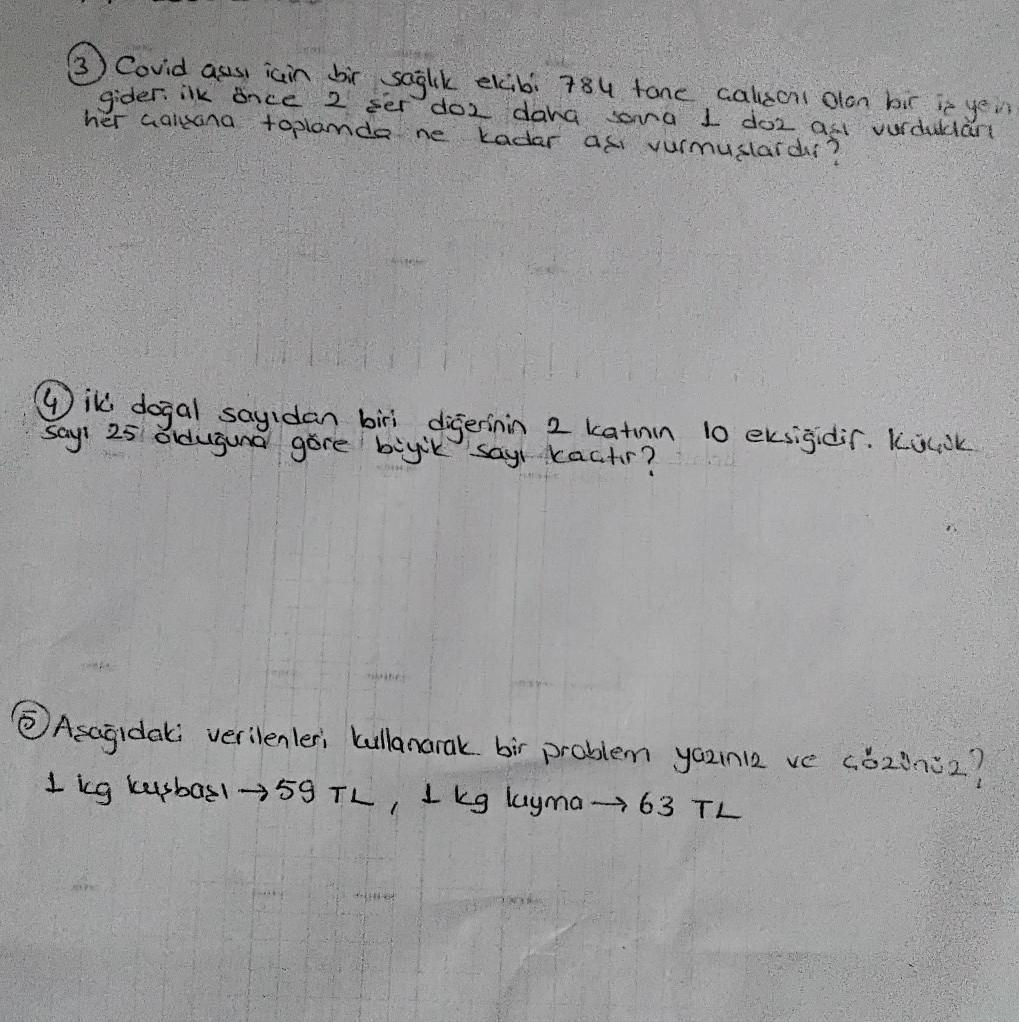 3 Covid aşısı için bir sağlık ekibi 784 tane çalışanı olan bir iş yeine
gider. ilk önce 2 şer doz daha sonra 1 doz aşı vurdukları
her çalışana toplamda ne kadar aşı vurmuşlardır?
4 iki doğal sayıdan biri diğerinin 2 katının 10 eksiğidir. Küçük
sayı 25 olduğuna göre büyük sayı kaçtır?
5 Aşağıdaki verilenleri kullanarak bir problem yazınız ve çözünüz?
1 kg kuşbaşı → 59 TL, 1 kg kıyma → 63 TL